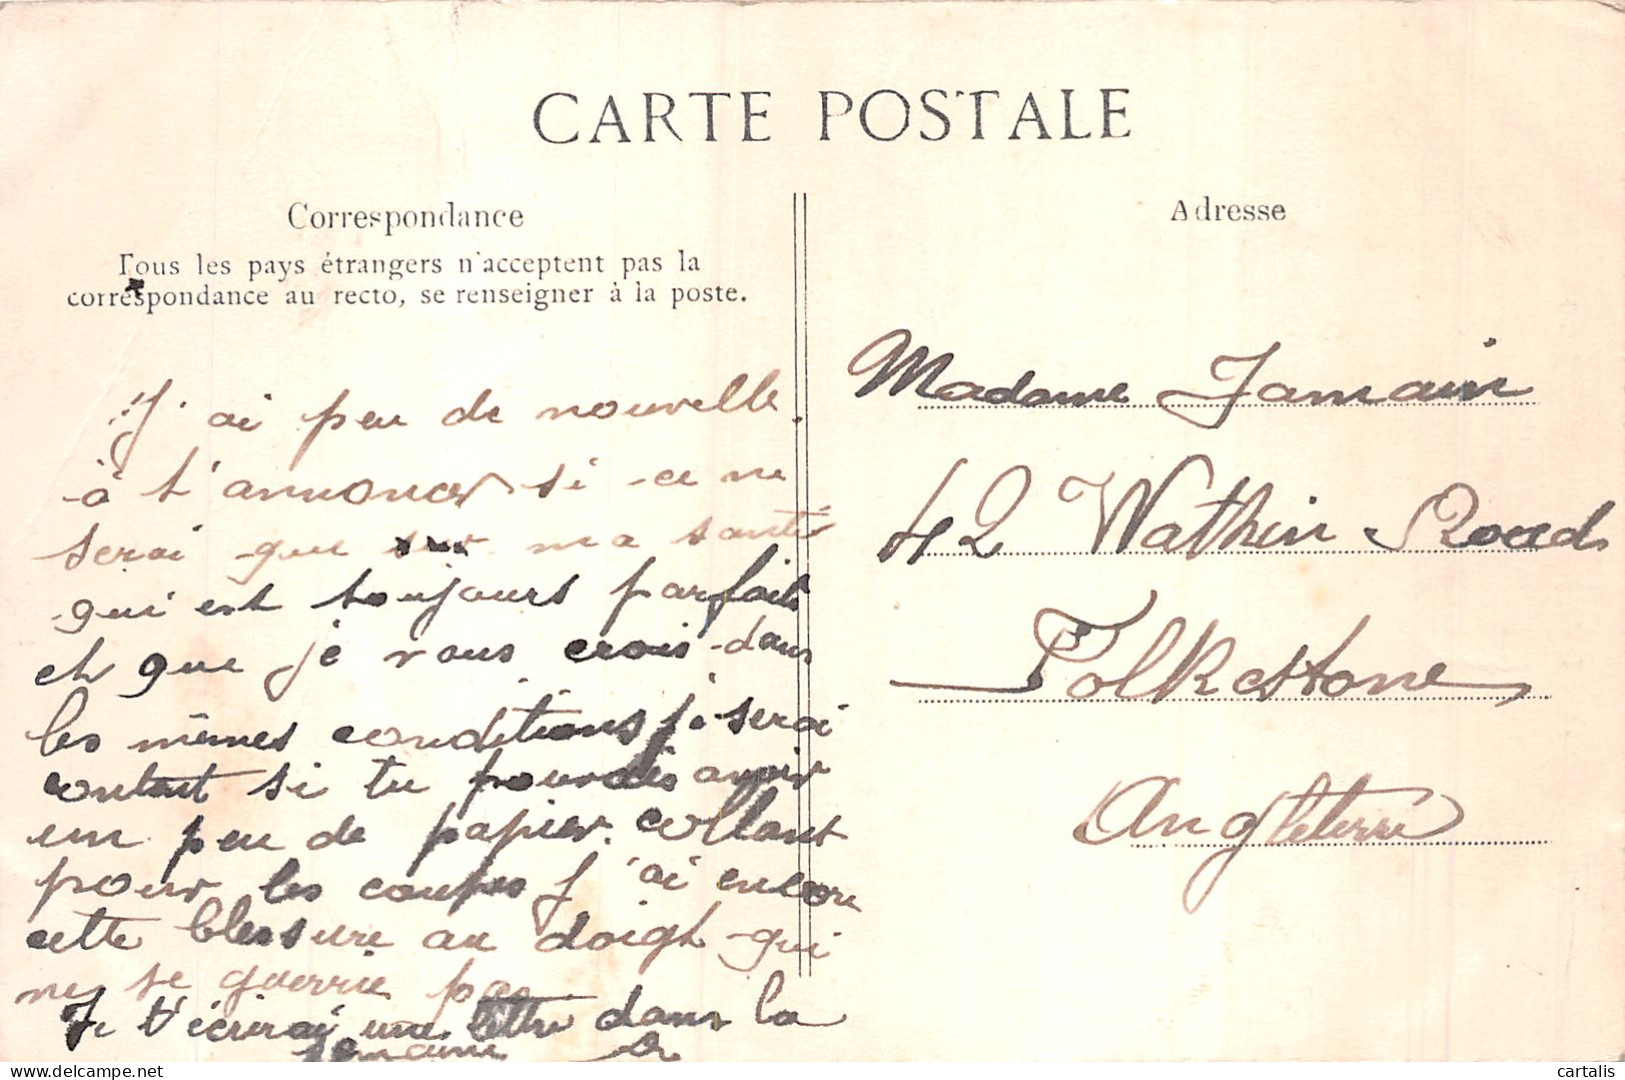 CARTE POSTALE
Correspondance
Tous les pays étrangers n'acceptent pas la
correspondance au recto, se renseigner à la poste.
J'ai peu de nouvelle
à t'annoncer si ce ne
serai que sur ma santé
qui est toujours parfaite
et que je vous crois dans
les mêmes conditions je serai
contant si tu pourrais avoir
un peu de papier collant
pour les coupes j'ai encore
cette blessure au doigt qui
ne se guerrie pas
Je t'écrirai une lettre dans la
semaine
Adresse
Madame Jamain
42 Wathin Road
Folkestone
Angleterre
cartalis
delcampe.net